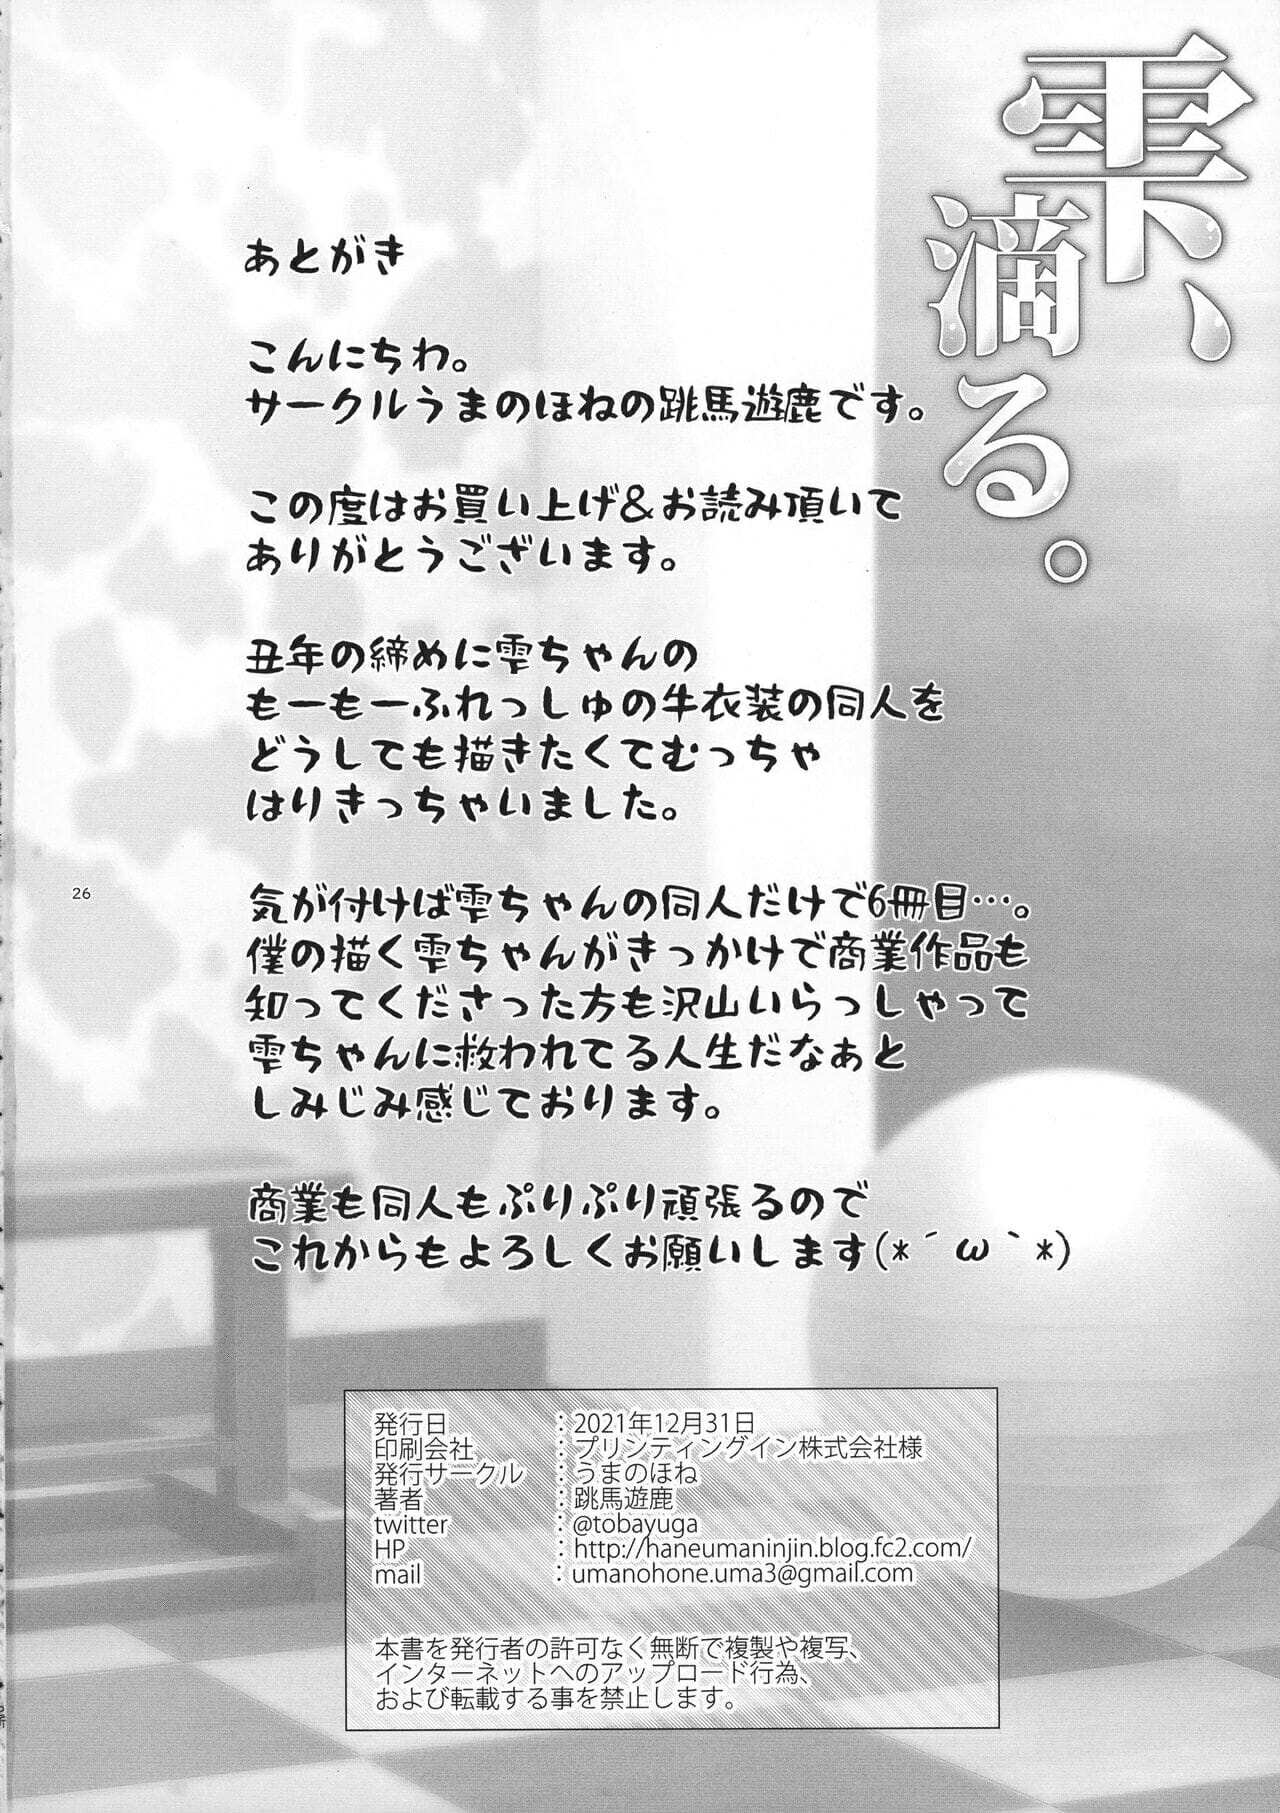 雫、
滴る。
あとがき
こんにちわ。
サークルうまのほねの跳馬遊鹿です。
この度はお買い上げ&お読み頂いて
ありがとうございます。
丑年の締めに雫ちゃんの
もーもーふれっしゅの牛衣装の同人を
どうしても描きたくてむっちゃ
はりきっちゃいました。
気が付けば雫ちゃんの同人だけで6冊目…。
僕の描く雫ちゃんがきっかけで商業作品も
知ってくださった方も沢山いらっしゃって
雫ちゃんに救われてる人生だなぁと
しみじみ感じております。
商業も同人もぷりぷり頑張るので
これからもよろしくお願いします(*´ω`*)
26
発行日 : 2021年12月31日
印刷会社 : プリンティングイン株式会社様
発行サークル : うまのほね
著者 : 跳馬遊鹿
twitter : @tobayuga
HP : http://haneumaninjin.blog.fc2.com/
mail : umanohone.uma3@gmail.com
本書を発行者の許可なく無断で複製や複写、
インターネットへのアップロード行為、
および転載する事を禁止します。